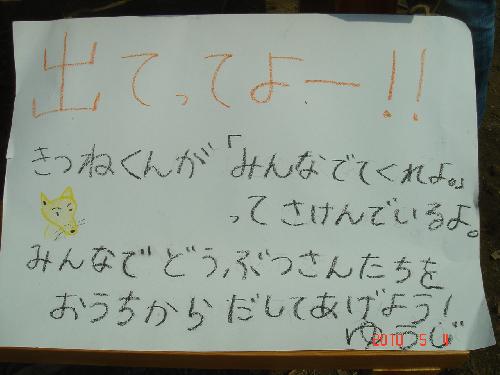 出てってよー!!
きつねくんが「みんなでてくれよ。」
ってさけんでいるよ。
みんなでどうぶつさんたちを
おうちからだしてあげよう!
ゆうじ